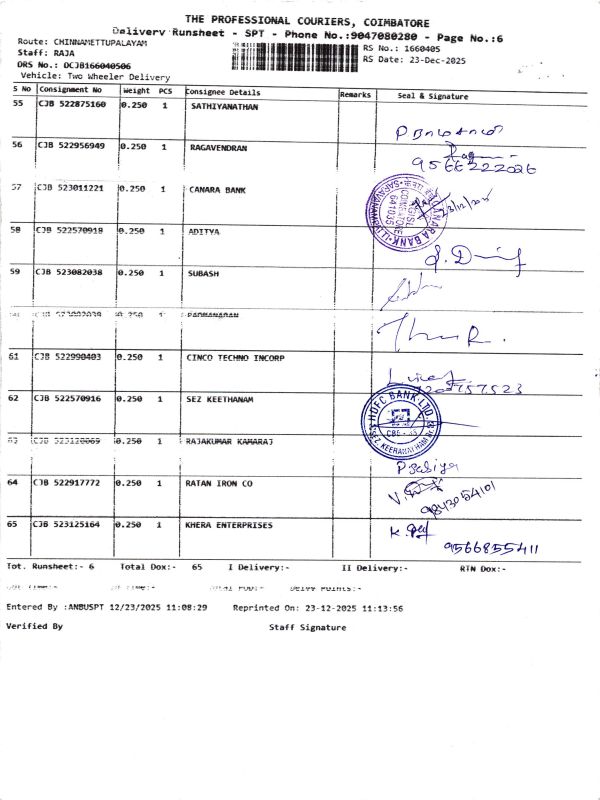 THE PROFESSIONAL COURIERS, COIMBATORE
Delivery Runsheet - SPT - Phone No.:9047080280 - Page No.:6
Route: CHINNAMETTUPALAYAM
RS No.: 1660405
Staff: RAJA
RS Date: 23-Dec-2025
DRS No.: DCJB166040506
Vehicle: Two Wheeler Delivery
S No Consignment No Weight PCS Consignee Details Remarks Seal & Signature
55 CJB 522875160 0.250 1 SATHIYANATHAN
56 CJB 522956949 0.250 1 RAGAVENDRAN
9566222026
57 CJB 523011221 0.250 1 CANARA BANK
CANARA BANK
COIMBATORE
641035
23/12/25
58 CJB 522570918 0.250 1 ADITYA
59 CJB 523082038 0.250 1 SUBASH
CJB 523082039 0.250 1 PADMANABAN
61 CJB 522990403 0.250 1 CINCO TECHNO INCORP
62 CJB 522570916 0.250 1 SEZ KEETHANAM
HDFC BANK LTD.
CBE - 35
63 CJB 523120069 0.250 1 RAJAKUMAR KAMARAJ
64 CJB 522917772 0.250 1 RATAN IRON CO
9843054101
65 CJB 523125164 0.250 1 KHERA ENTERPRISES
9566855411
Tot. Runsheet:- 6 Total Dox:- 65 I Delivery:- II Delivery:- RTN Dox:-
Entered By :ANBUSPT 12/23/2025 11:08:29 Reprinted On: 23-12-2025 11:13:56
Verified By Staff Signature